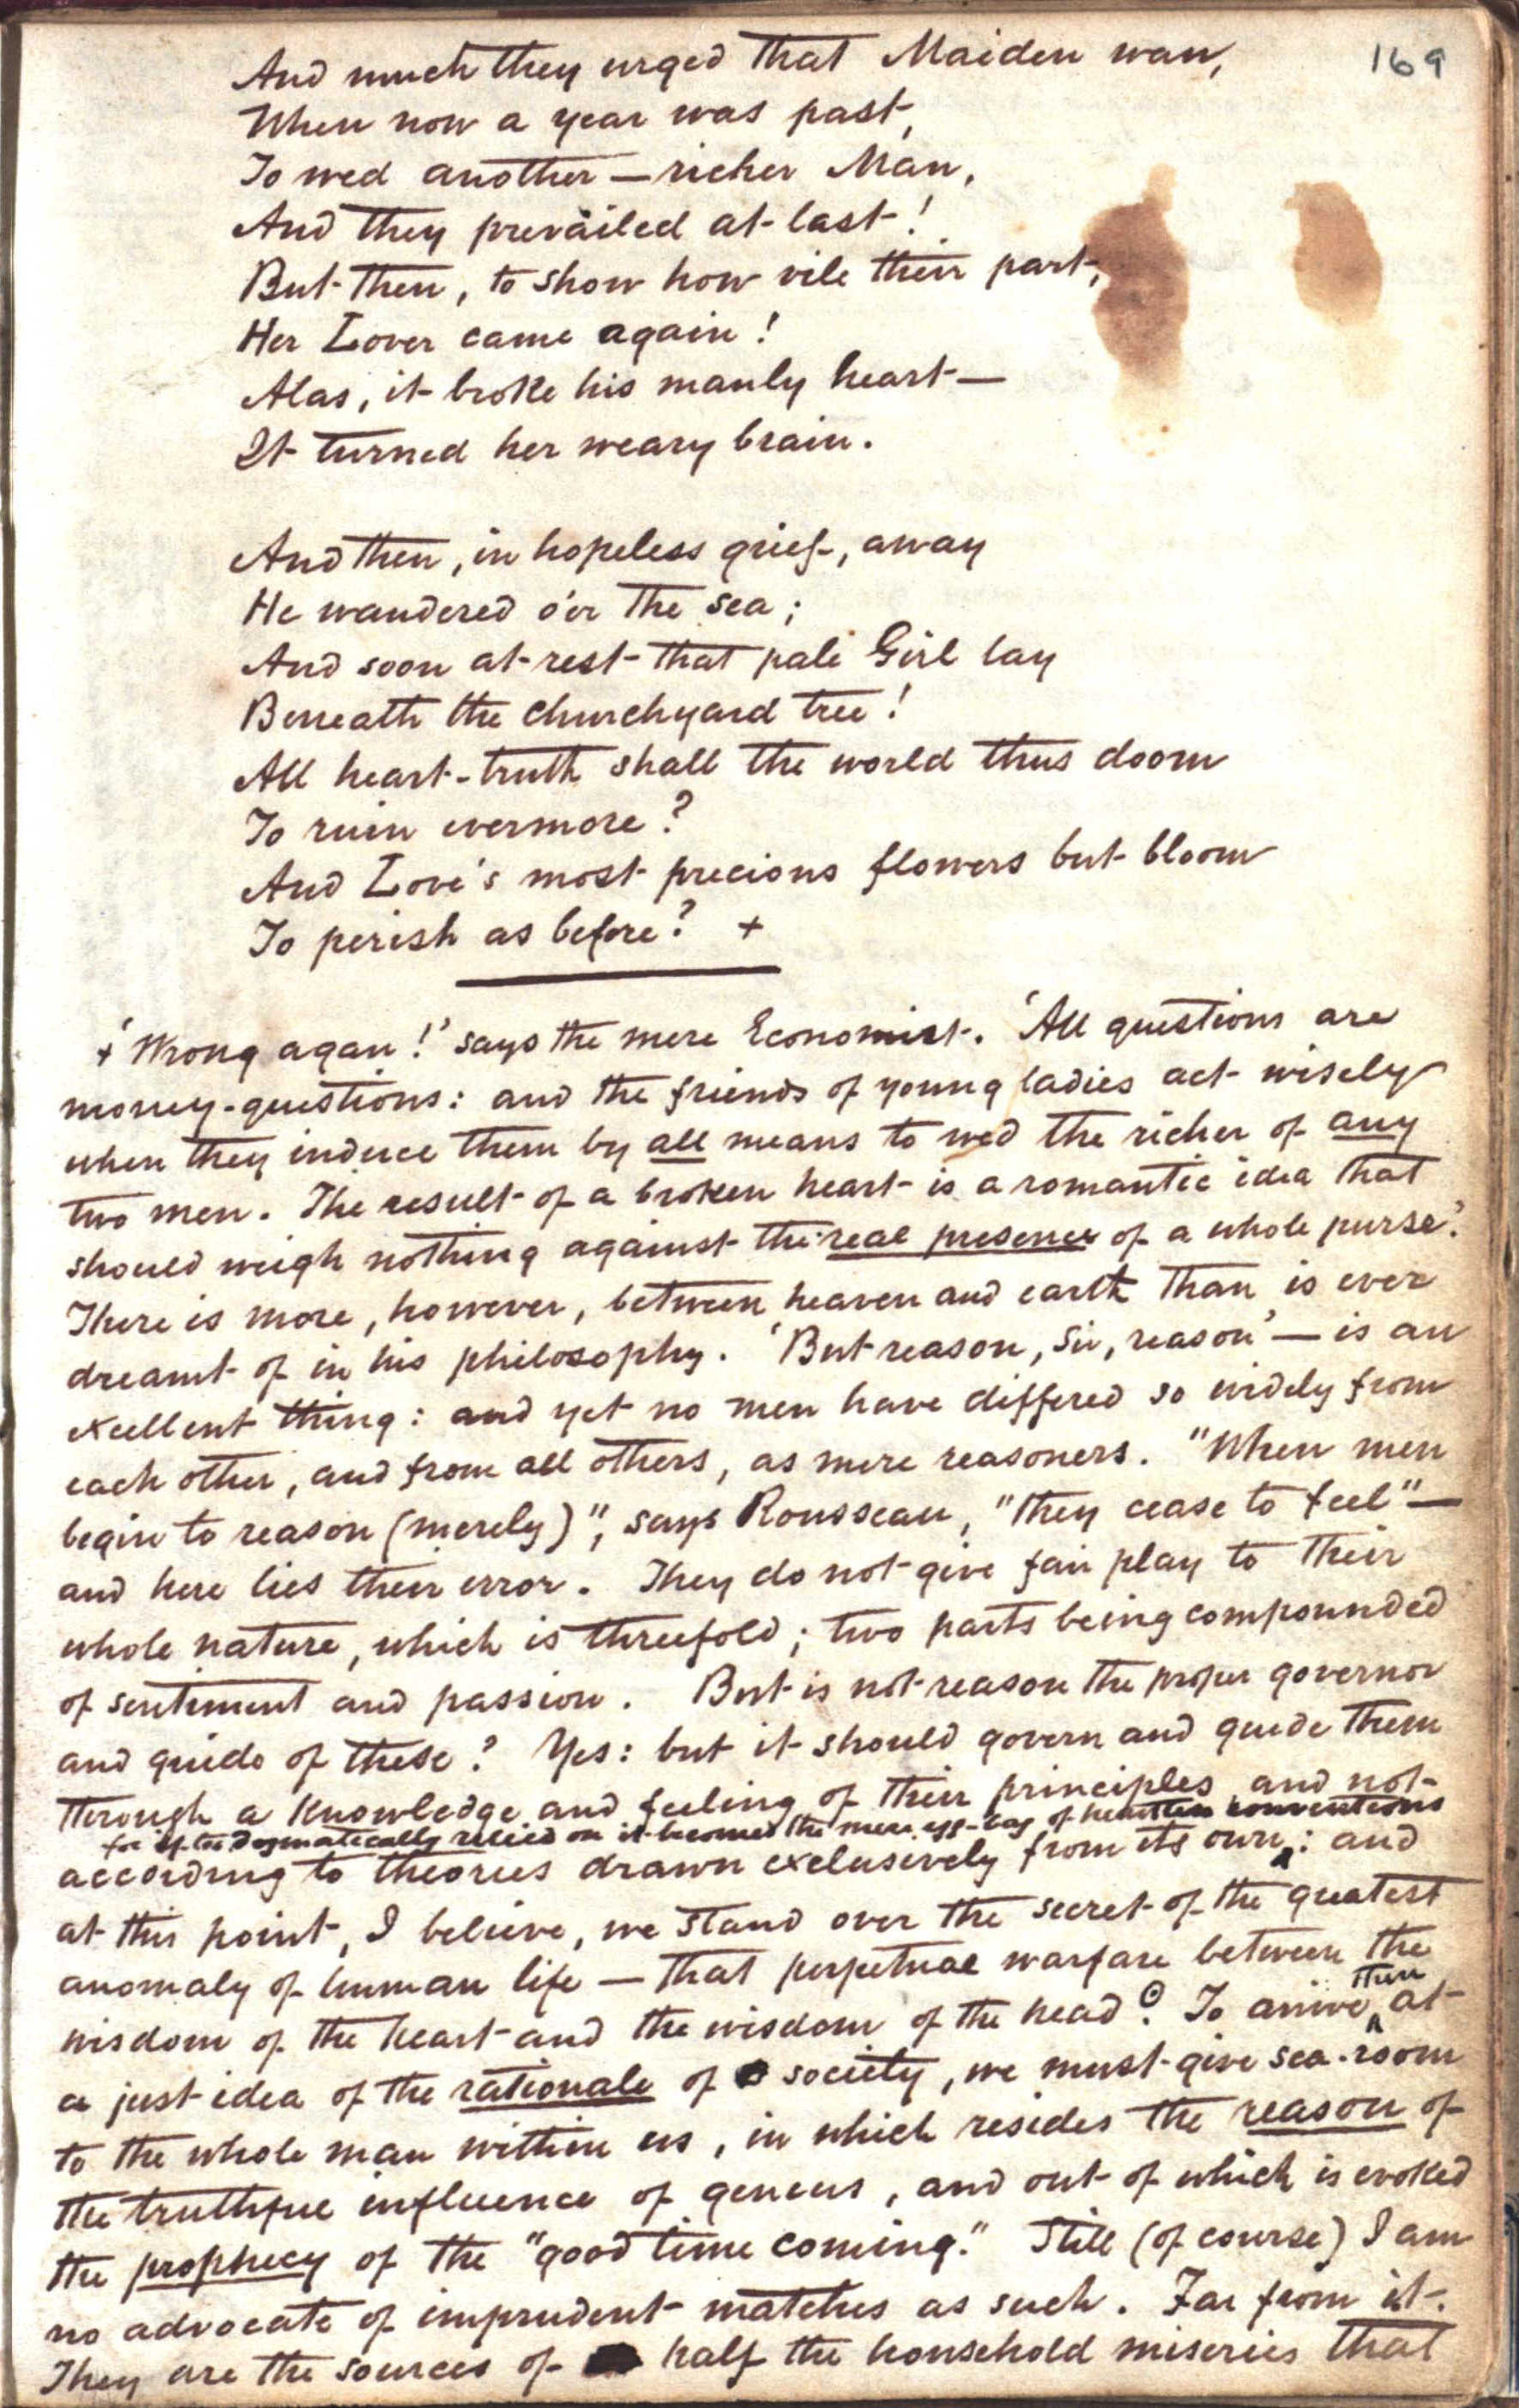 169
And much they urged that Maiden wan,
When now a year was past,
To wed another — richer Man,
And they prevailed at last!
But then, to show how vile their part,
Her Lover came again!
Alas, it broke his manly heart —
It turned her weary brain.
And then, in hopeless grief, away
He wandered o'er the sea;
And soon at rest that pale Girl lay
Beneath the churchyard tree!
All heart-truth shall the world thus doom
To ruin evermore?
And Love's most precious flowers but bloom
To perish as before? +
+ 'Wrong again!' says the mere Economist. 'All questions are
money-questions: and the friends of young ladies act wisely
when they induce them by all means to wed the richer of any
two men. The result of a broken heart is a romantic idea that
should weigh nothing against the real presence of a whole purse.'
There is more, however, between heaven and earth than is ever
dreamt of in his philosophy. 'But reason, Sir, reason' — is an
excellent thing: and yet no men have differed so widely from
each other, and from all others, as mere reasoners. "When men
begin to reason (merely)", says Rousseau, "they cease to feel" —
and here lies their error. They do not give fair play to their
whole nature, which is threefold; two parts being compounded
of sentiment and passion. But is not reason the proper governor
and guide of these? Yes: but it should govern and guide them
through a knowledge and feeling of their principles and not
for if too dogmatically relied on it becomes the mere egg-bag of heartless conventions
according to theories drawn exclusively from its own: and
at this point, I believe, we stand over the secret of the greatest
anomaly of human life — that perpetual warfare between the
wisdom of the heart and the wisdom of the head. To arrive then at
a just idea of the rationale of society, we must give sea-room
to the whole man within us, in which resides the reason of
the truthful influence of genius, and out of which is evoked
the prophecy of the "good time coming." Still (of course) I am
no advocate of imprudent matches as such. Far from it.
They are the sources of half the household miseries that